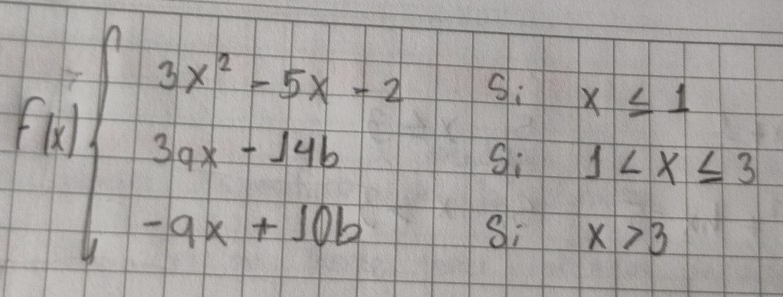 f(x) { 3x² - 5x - 2 Si x ≤ 1
3ax - 14b Si 1 < x ≤ 3
-ax + 10b Si x > 3